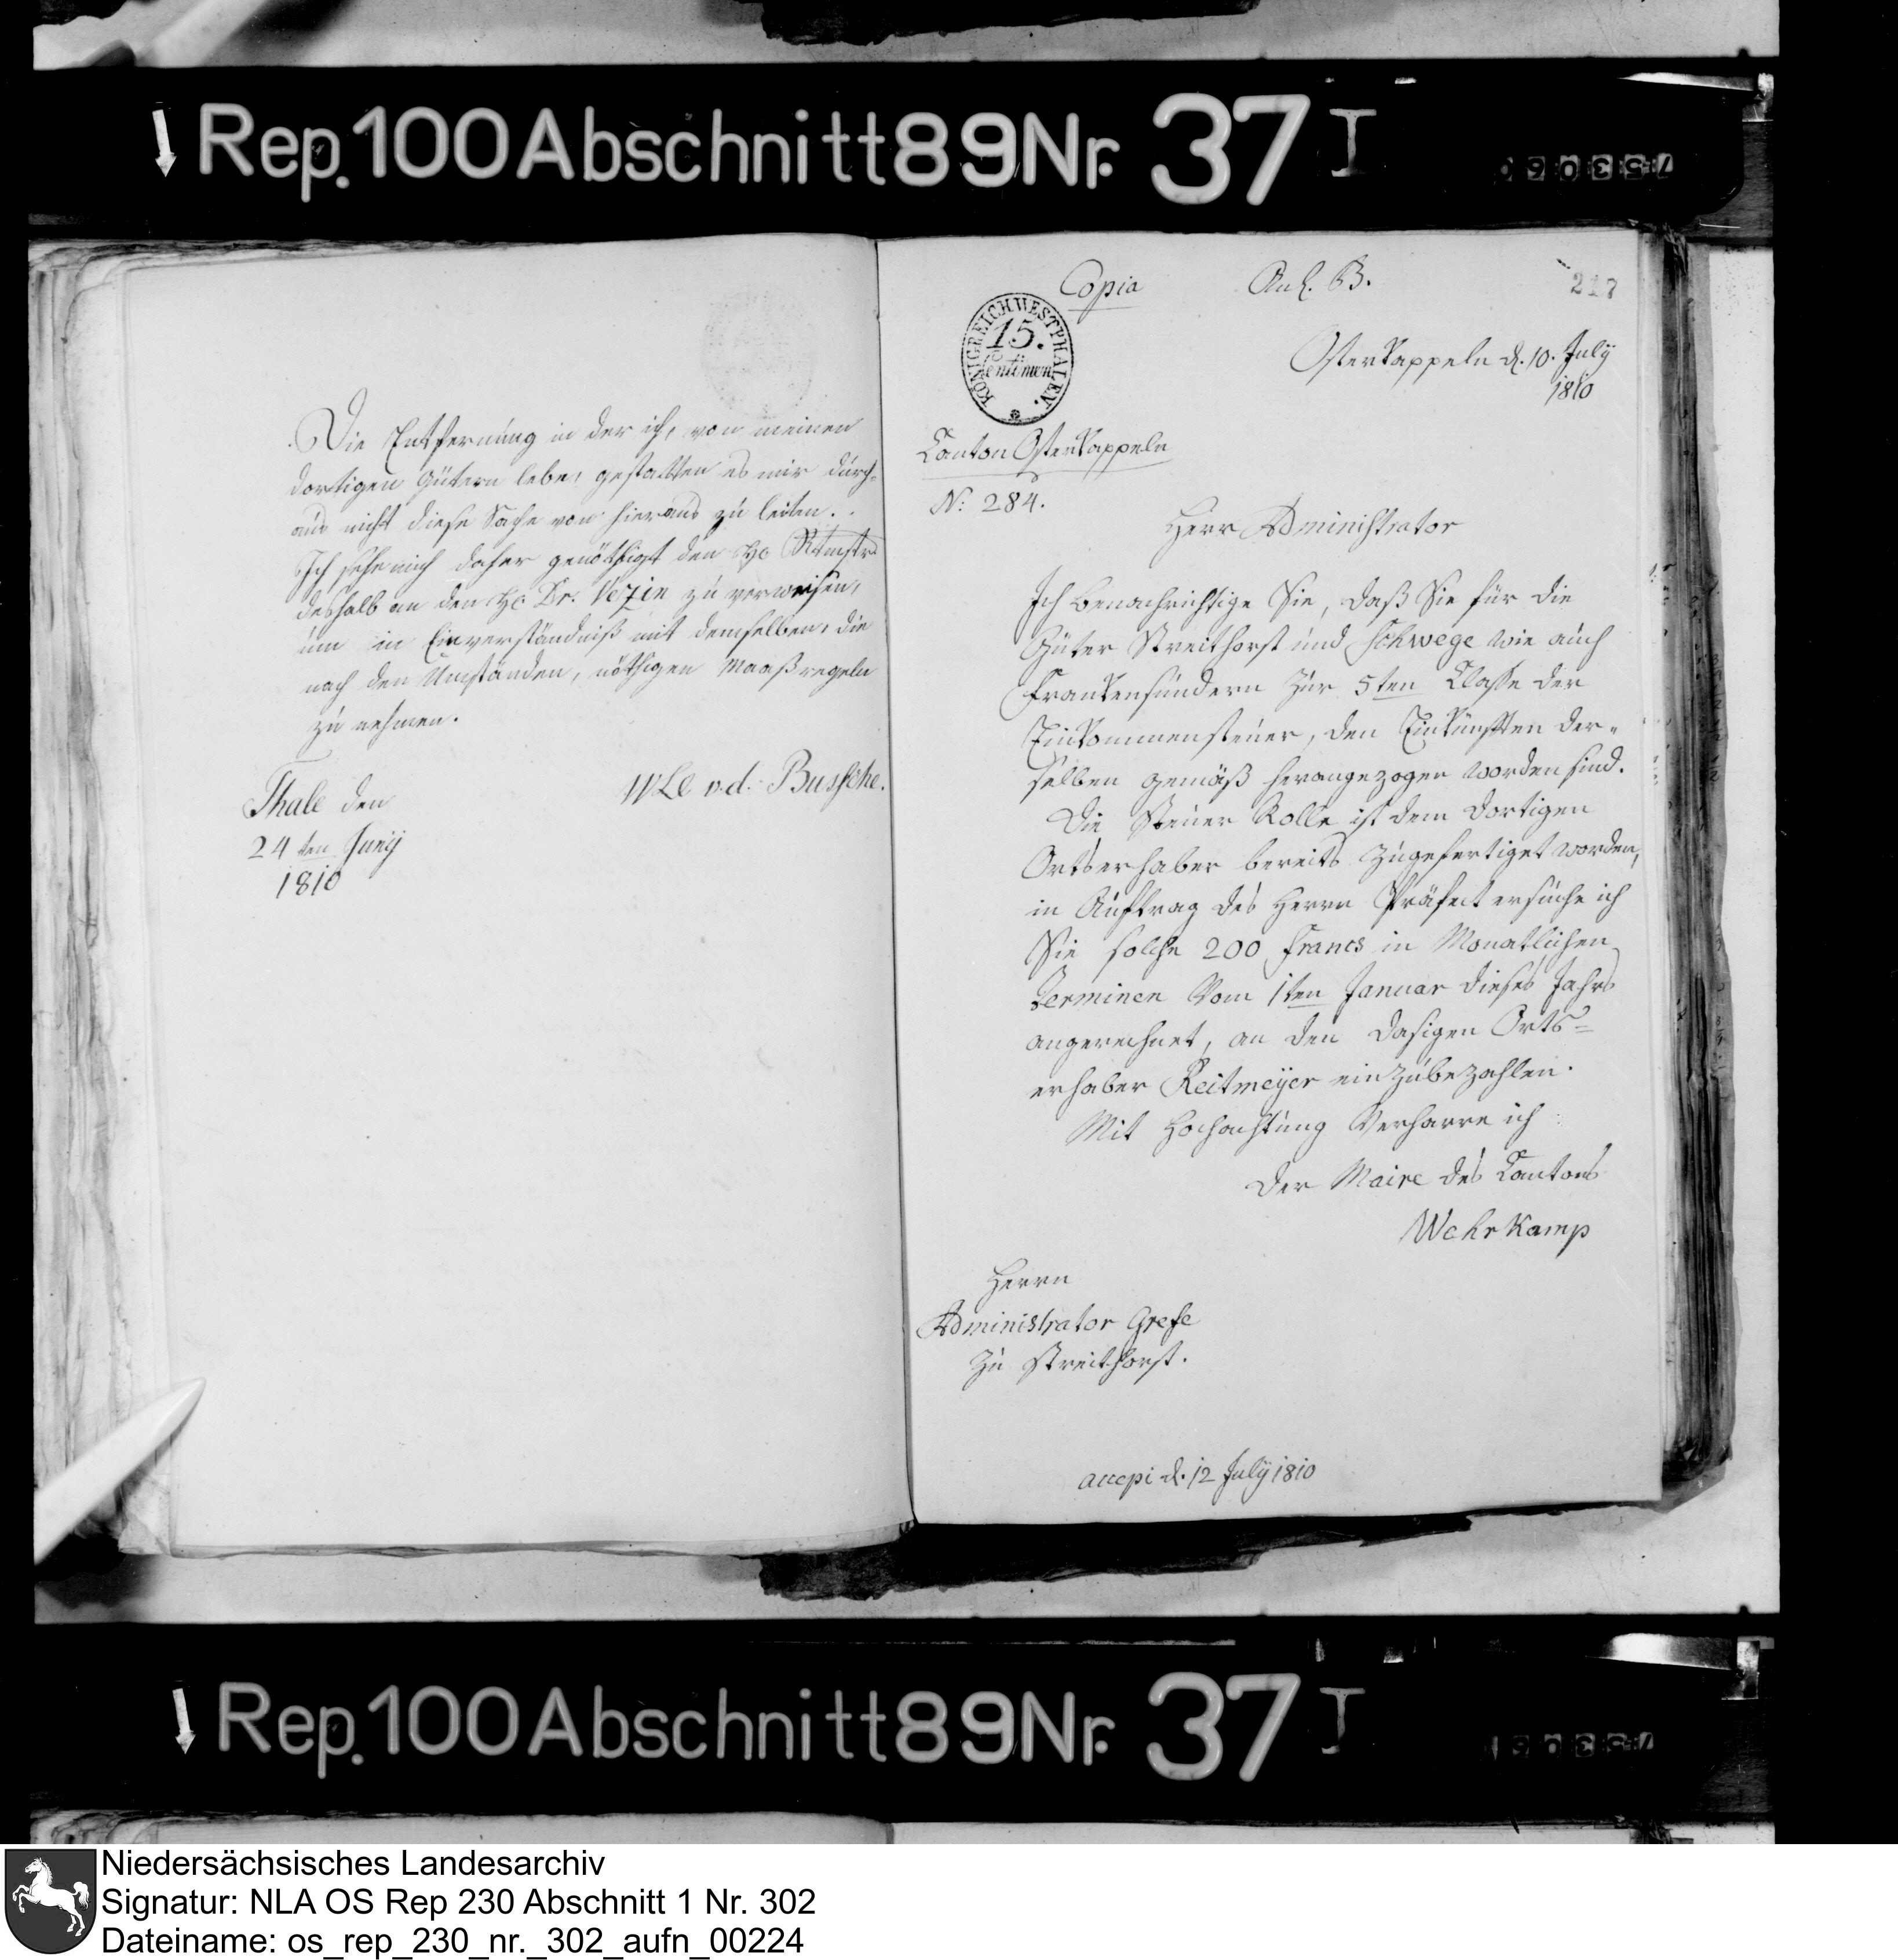 Rep. 100 Abschnitt 89 Nr. 37 I
Die Entfernung in der ich, von meinen
dortigen Gütern lebe, gestatten es mir durch-
aus nicht diese Sache von hieraus zu leiten.
Ich sehe mich daher genöthigt den H. Rtmstr
deshalb an den H. Dr. Vezin zu verweisen,
um in Einverständniß mit demselben, die
nach den Umständen, nöthigen Maaßregeln
zu nehmen.
WLC v.d. Bussche.
Thale den
24ten Junÿ
1810
Copia
Anl. B.
217
KÖNIGREICH WESTPHALEN.
15.
Centimen
Osterkappeln d. 10. Julÿ
1810
Canton Osterkappeln
N: 284.
Herr Administrator
Ich benachrichtige Sie, daß Sie für die
Güter Streithorst und Schwege wie auch
Frankensundern zur 5ten Classe der
Einkommensteuer, den Einkünften der-
selben gemäß herangezogen worden sind.
Die Steuer Rolle ist dem dortigen
Ortserheber bereits zugefertiget worden,
in Auftrag des Herrn Präfect ersuche ich
Sie solche 200 Francs in Monatlichen
Terminen vom 1ten Januar dieses Jahrs
angerechnet, an den dasigen Orts-
erheber Reitmeÿer einzubezahlen.
Mit Hochachtung Verharre ich
Der Maire des Cantons
Wehrkamp
Herrn
Administrator Grefe
zu Streithorst.
accepi d. 12 Julÿ 1810
Rep. 100 Abschnitt 89 Nr. 37 I
Niedersächsisches Landesarchiv
Signatur: NLA OS Rep 230 Abschnitt 1 Nr. 302
Dateiname: os_rep_230_nr._302_aufn_00224